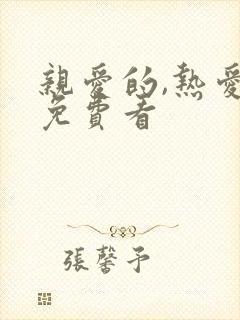 親愛的,熱愛
免費看
張馨予